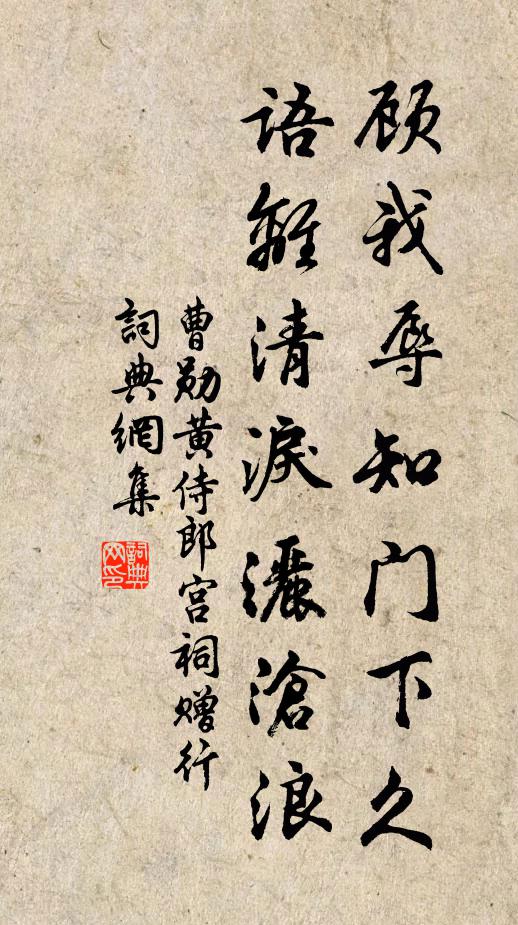 顾我辱知门下久
语離清淚灑滄浪
曹勋黄侍郎宫祠赠行
詞典網集
詞典网印